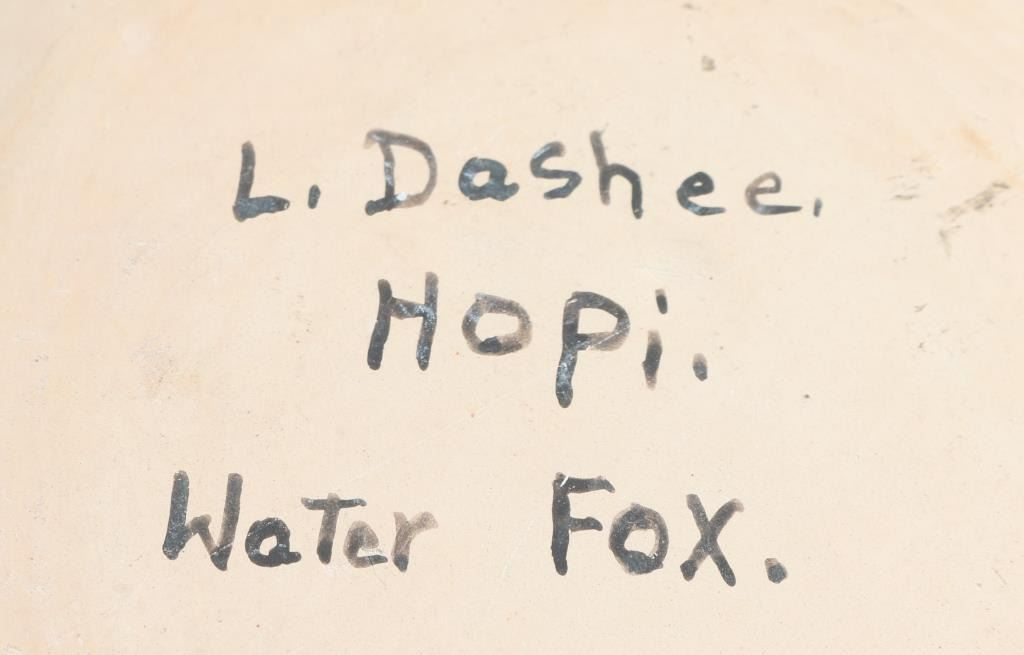 L. Dashee.
Hopi.
Water Fox.